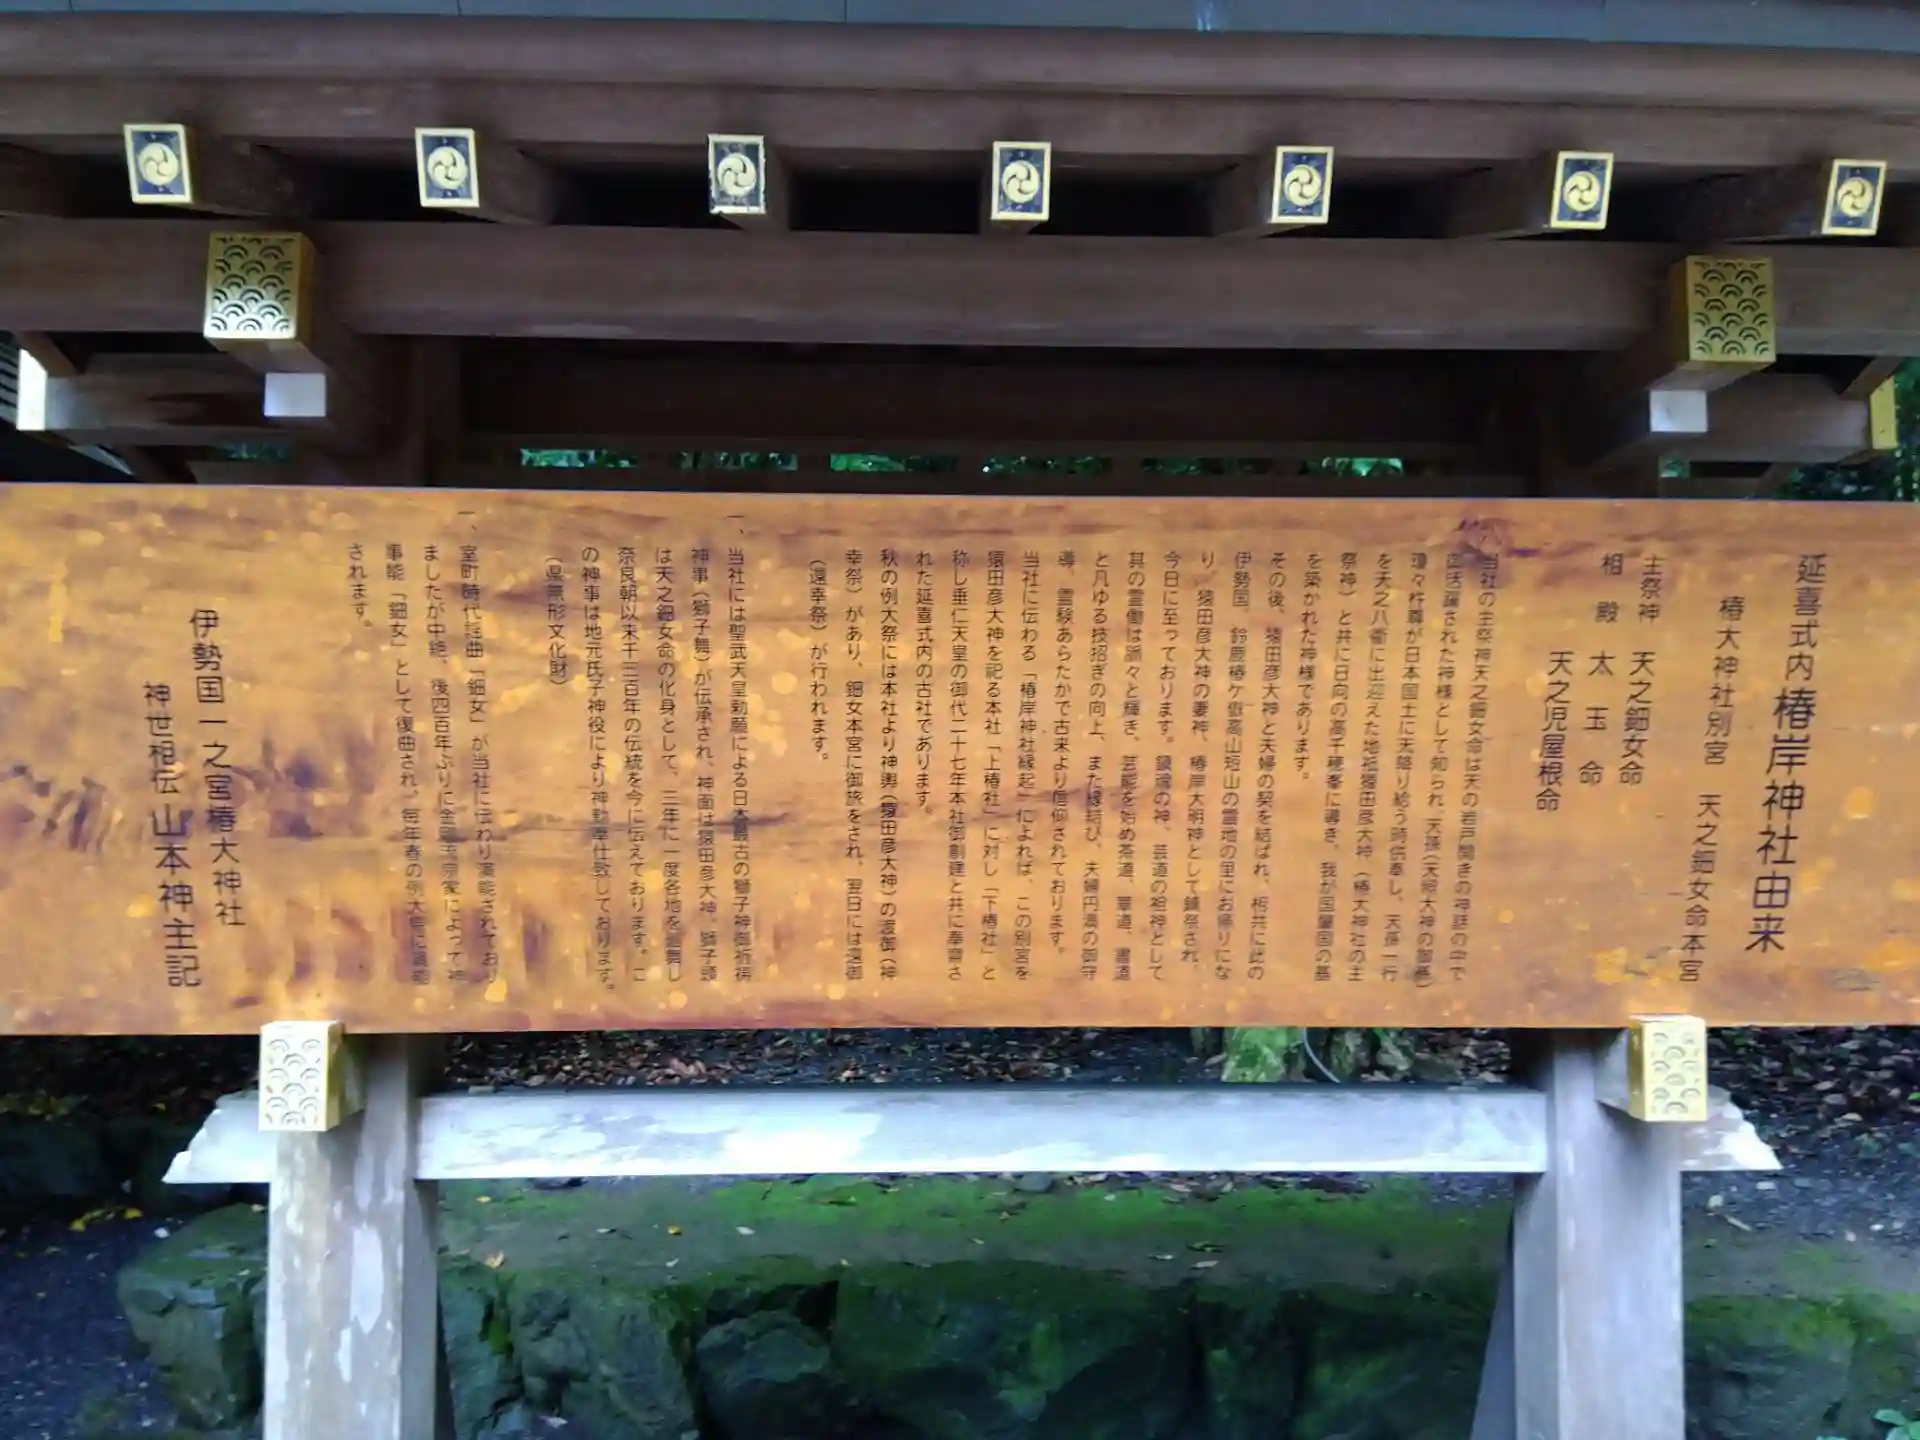 延喜式内 椿岸神社由来
椿大神社別宮 天之鈿女命本宮
主祭神 天之鈿女命
相殿 太玉命
天之児屋根命
当社の主祭神天之鈿女命は天の岩戸開きの神話の中で
御活躍された神様として知られ、天孫(天照大神の御孫)
瓊々杵尊が日本国土に天降り給う時供奉し、天孫一行
を天之八衢に出迎えた地祇猿田彦大神(椿大神社の主
祭神)と共に日向の高千穂峯に導き、我が国肇国の基
を築かれた神様であります。
その後、猿田彦大神と夫婦の契を結ばれ、相共に此の
伊勢国、鈴鹿椿ケ嶽高山短山の霊地の里にお帰りにな
り、猿田彦大神の妻神、椿岸大明神として鎮祭され、
今日に至っております。鎮魂の神、芸道の祖神として
其の霊働は脈々と輝き、芸能を始め茶道、華道、書道
と凡ゆる技招ぎの向上、また縁結び、夫婦円満の御守
導、霊験あらたかで古来より信仰されております。
当社に伝わる「椿岸神社縁起」によれば、この別宮を
猿田彦大神を祀る本社「上椿社」に対し「下椿社」と
称し垂仁天皇の御代二十七年本社御創建と共に奉斎さ
れた延喜式内の古社であります。
秋の例大祭には本社より神輿(猿田彦大神)の渡御(神
幸祭)があり、鈿女本宮に御旅をされ、翌日には還御
(還幸祭)が行われます。
一、当社には聖武天皇勅願による日本最古の獅子神御祈祷
神事(獅子舞)が伝承され、神面は猿田彦大神、獅子頭
は天之鈿女命の化身として、三年に一度各地を廻舞し
奈良朝以来千三百年の伝統を今に伝えております。こ
の神事は地元氏子神役により神勤奉仕致しております。
(県無形文化財)
一、室町時代謡曲「鈿女」が当社に伝わり演能されており
ましたが中絶、後四百年ぶりに金剛流宗家によって神
事能「鈿女」として復曲され、毎年春の例大祭に演能
されます。
伊勢国一之宮椿大神社
神世相伝 山本神主記